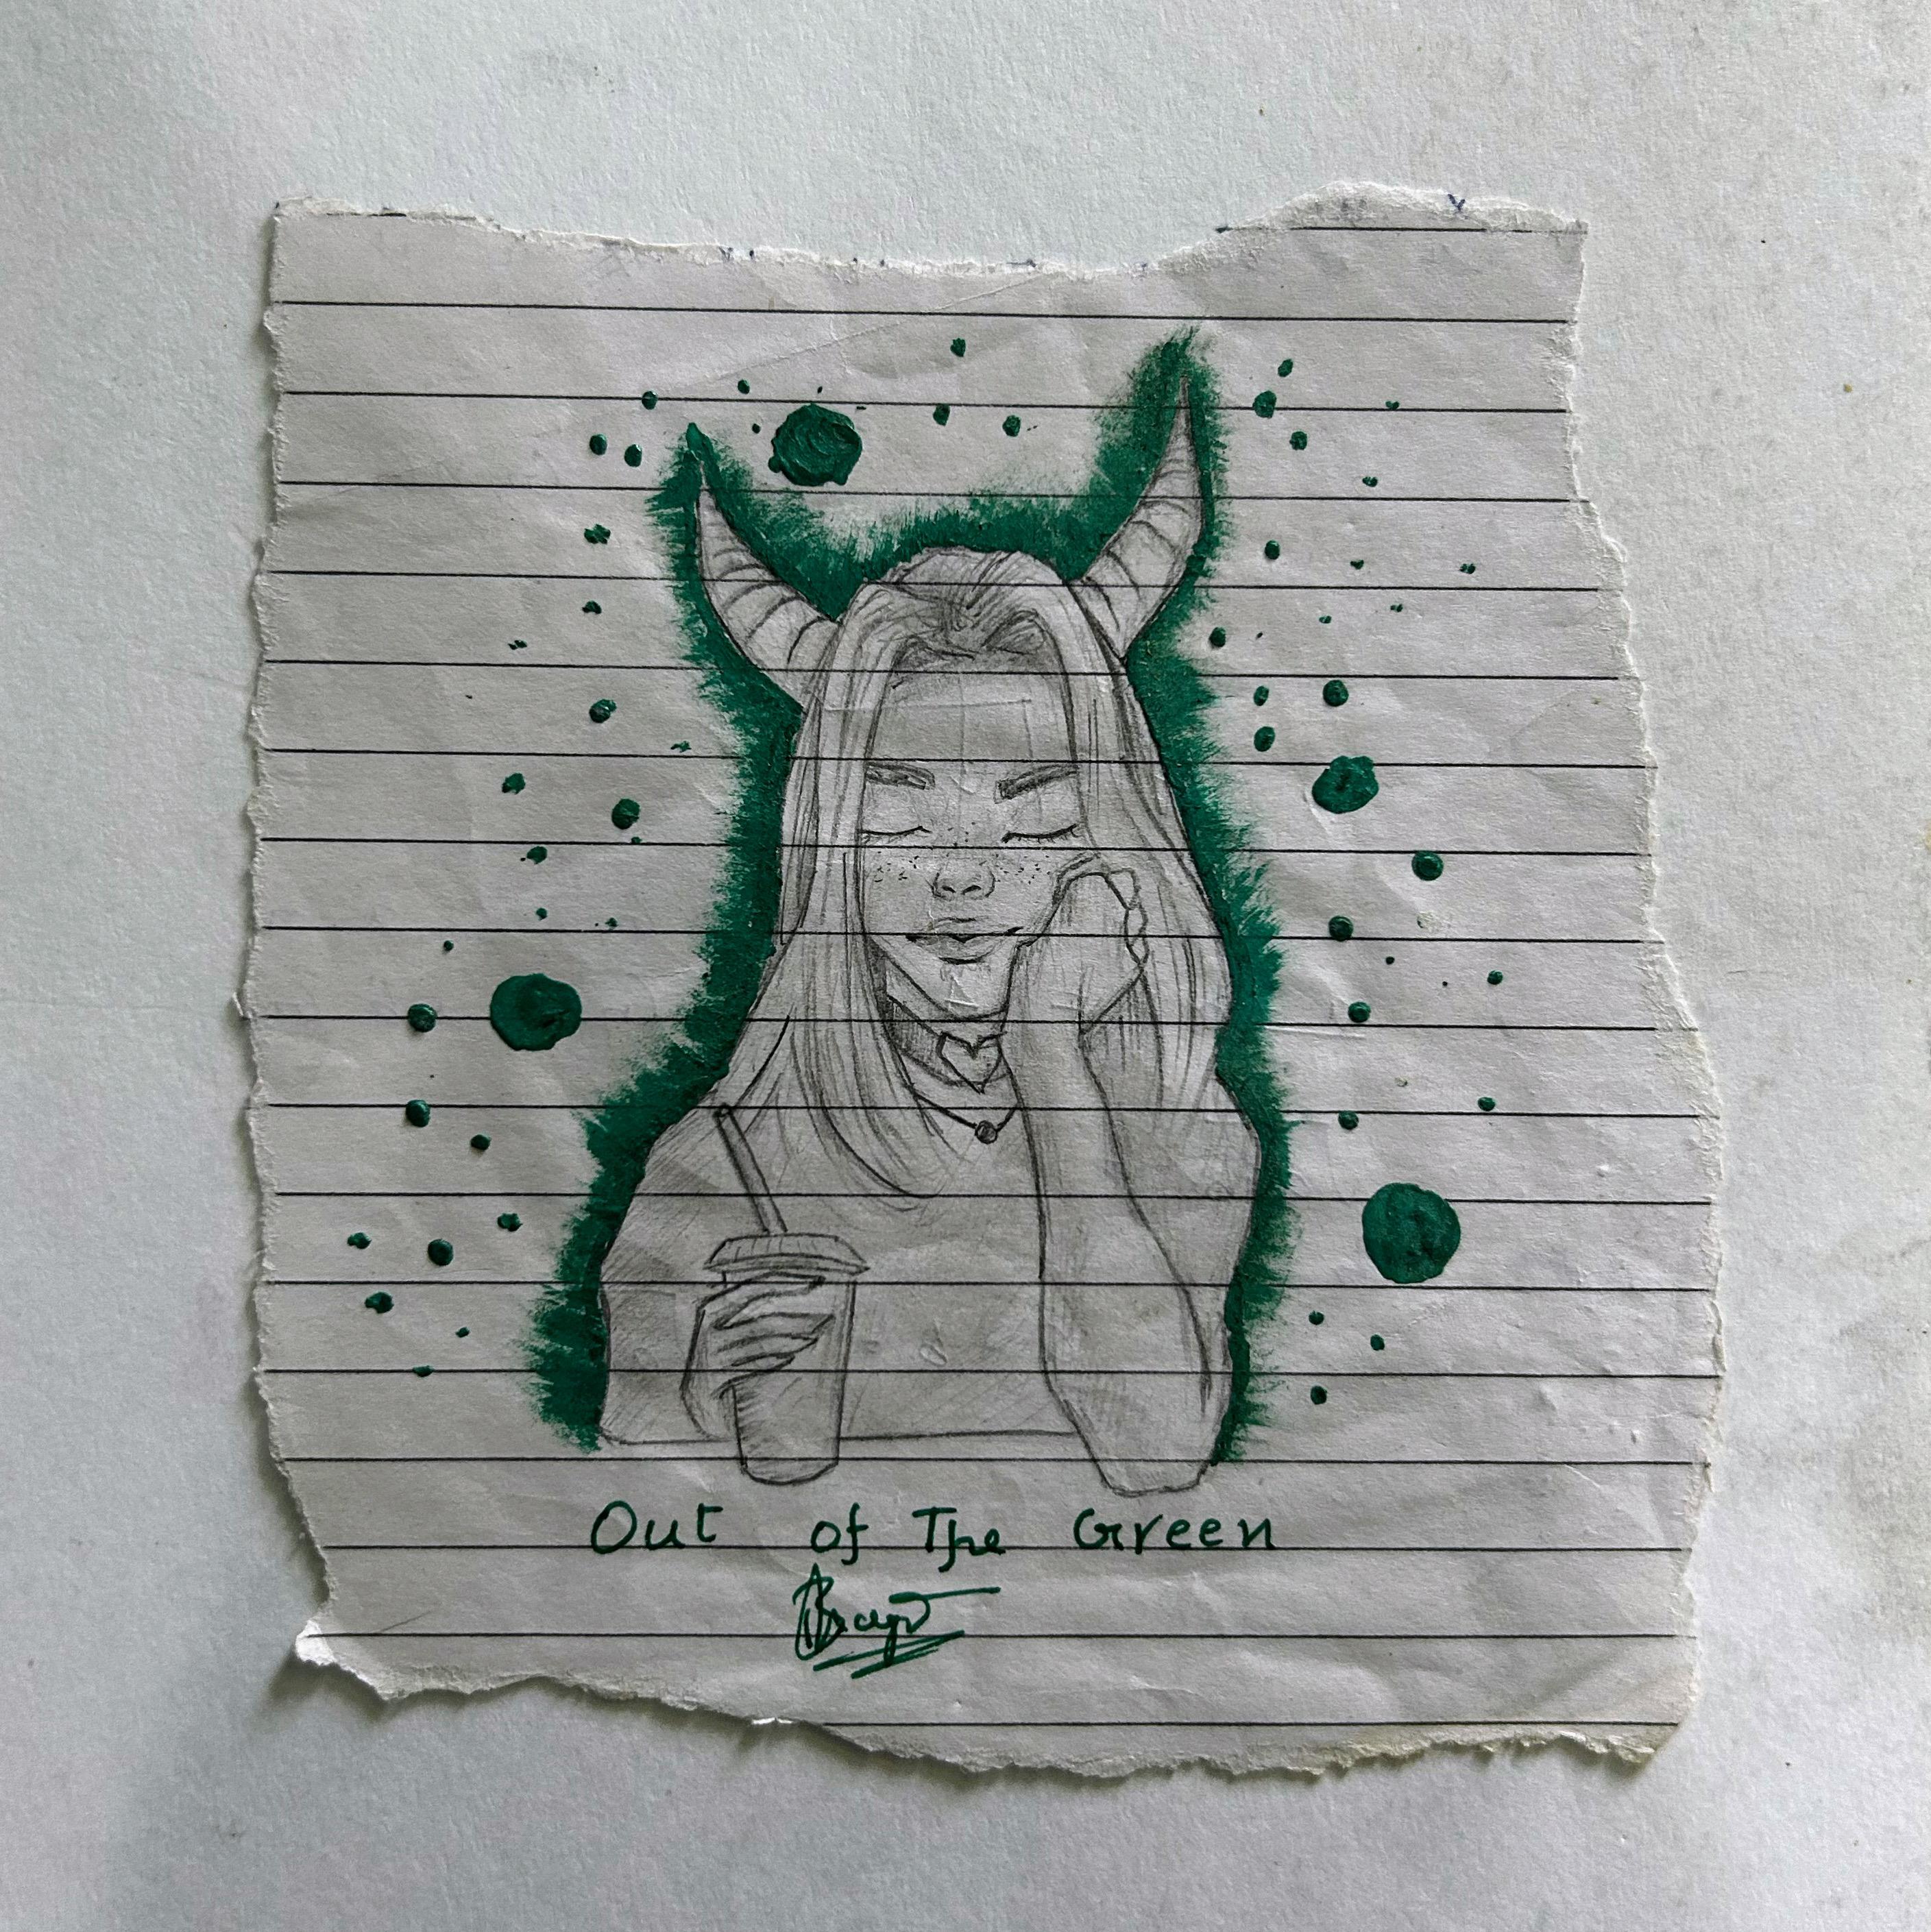 Out of The Green